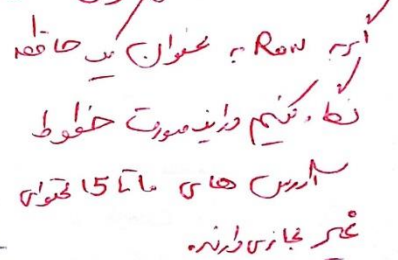 اگر به Row به عنوان یک حافظه
نگاه کنیم در این صورت خطوط
آدرس های ما تا 15 محتوای
غیر مجازی دارند.